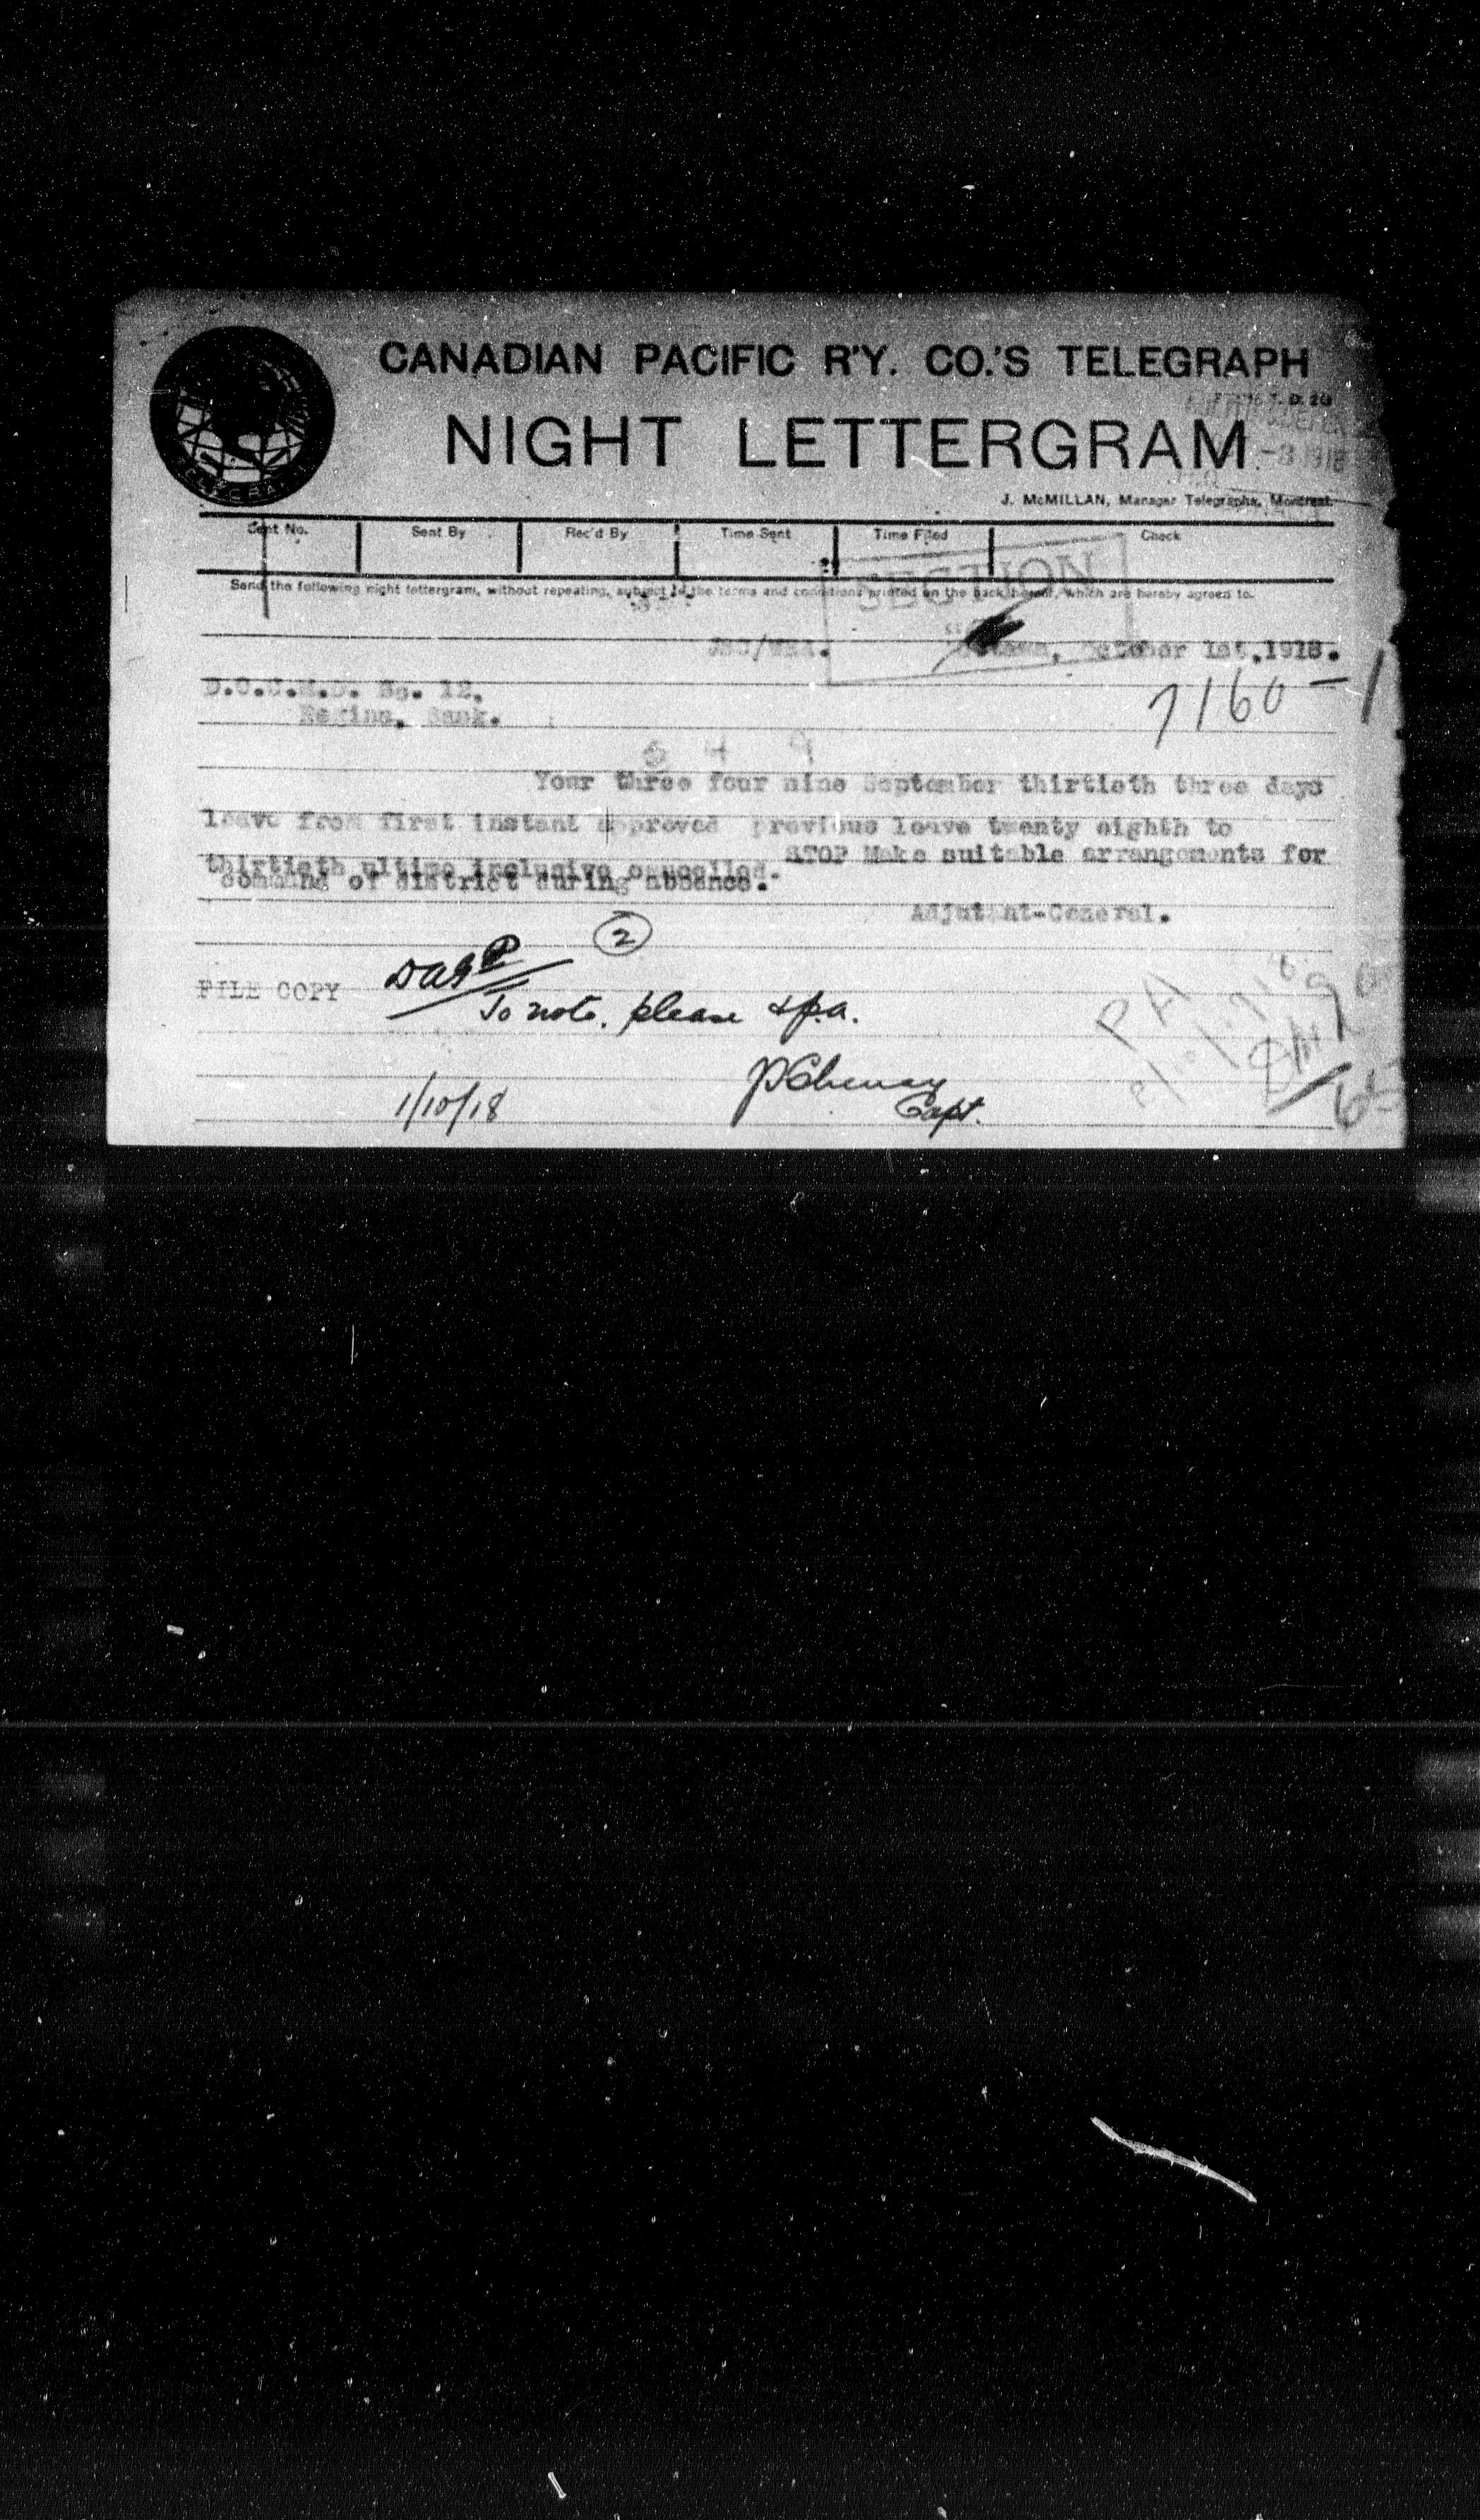 CANADIAN PACIFIC R'Y. CO.'S TELEGRAPH
T. D. 20
NIGHT LETTERGRAM
-3 1918
J. McMILLAN, Manager Telegraphs, Montreal.
Sent No. Sent By Rec'd By Time Sent Time Filed Check
SECTION
Send the following night lettergram, without repeating, subject to the terms and conditions printed on the back hereof, which are hereby agreed to.
Ottawa, October 1st, 1918.
D.O.C.M.D. No. 12,
7160-1
Regina, Sask.
3 4 9
Your three four nine September thirtieth three days
leave from first instant approved previous leave twenty eighth to
thirtieth ultimo inclusive cancelled. STOP Make suitable arrangements for
command of district during absence.
Adjutant-General.
2
FILE COPY
To note, please & p.a.
PA
Capt.
1/10/18